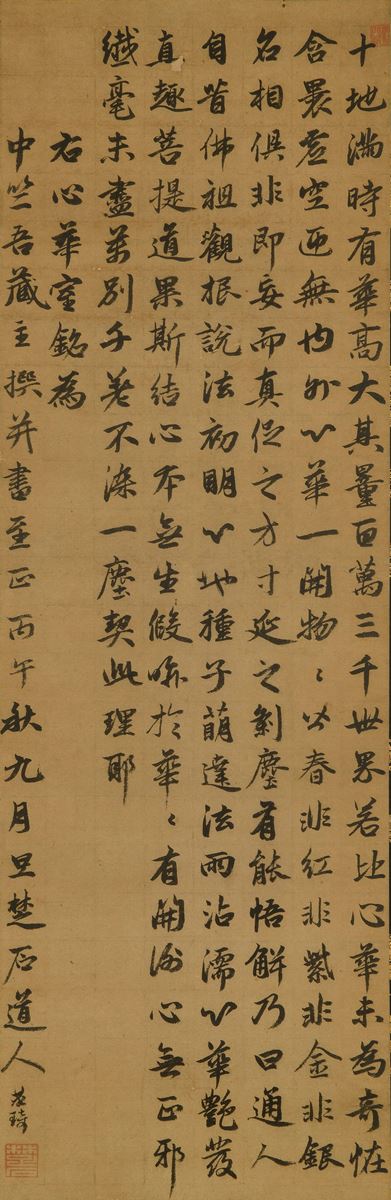 十地滿時有華高大其量百萬三千世界若比心華未為奇恠
含裹虛空迥無内外心華一開物〻皆春非紅非紫非金非銀
名相俱非即妄而真促之方寸延之剎塵有能悟解乃曰通人
自昔佛祖觀根說法初明心地種子萌達法雨沾濡心華艷發
直趣菩提道果斯結心本無生假喻於華〻有開謝心無正邪
纎毫未盡萬別千差不染一塵契此理耶
右心華室銘為
中竺吾藏主撰并書至正丙午秋九月旦楚石道人梵琦